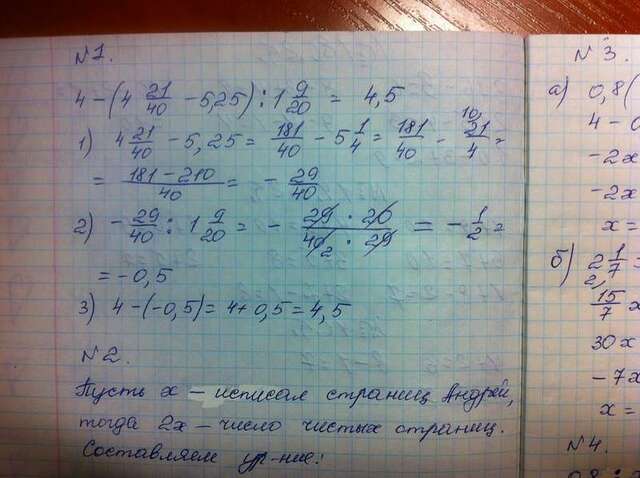 N1.
4 - (4 21/40 - 5,25) : 1 9/20 = 4,5
1) 4 21/40 - 5,25 = 181/40 - 5 1/4 = 181/40 - 21/4 10, =
= 181-210/40 = - 29/40
2) - 29/40 : 1 9/20 = - 29 · 20/40 2 · 29 = - 1/2 =
= -0,5
3) 4 - (-0,5) = 4 + 0,5 = 4,5
N2.
Пусть x - исписал страниц Андрей,
тогда 2x - число чистых страниц.
Составляем ур-ние:
N3.
а) 0,8(
4 - 0
-2x
-2x
x =
б) 2 1/7 =
15/7 x
30x
-7x
x =
N4.